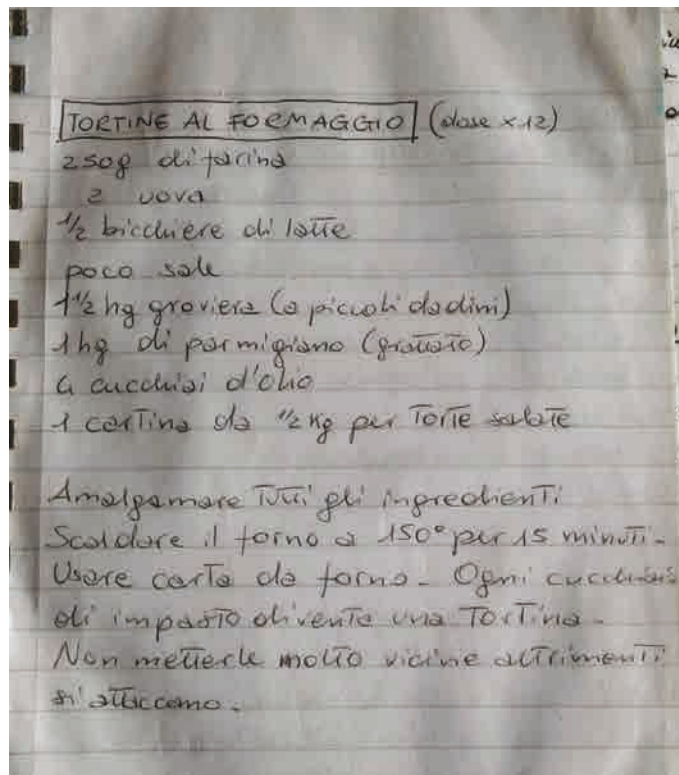 TORTINE AL FORMAGGIO (dose x 12)
250g di farina
2 uova
1/2 bicchiere di latte
poco sale
1 1/2 hg groviera (a piccoli dadini)
1 hg di parmigiano (grattato)
4 cucchiai d'olio
1 cartina da 1/2 kg per torte salate
Amalgamare tutti gli ingredienti
Scaldare il forno a 150° per 15 minuti.
Usare carta da forno. Ogni cucchiaio
di impasto diventa una tortina.
Non metterle molto vicine altrimenti
si attaccano.